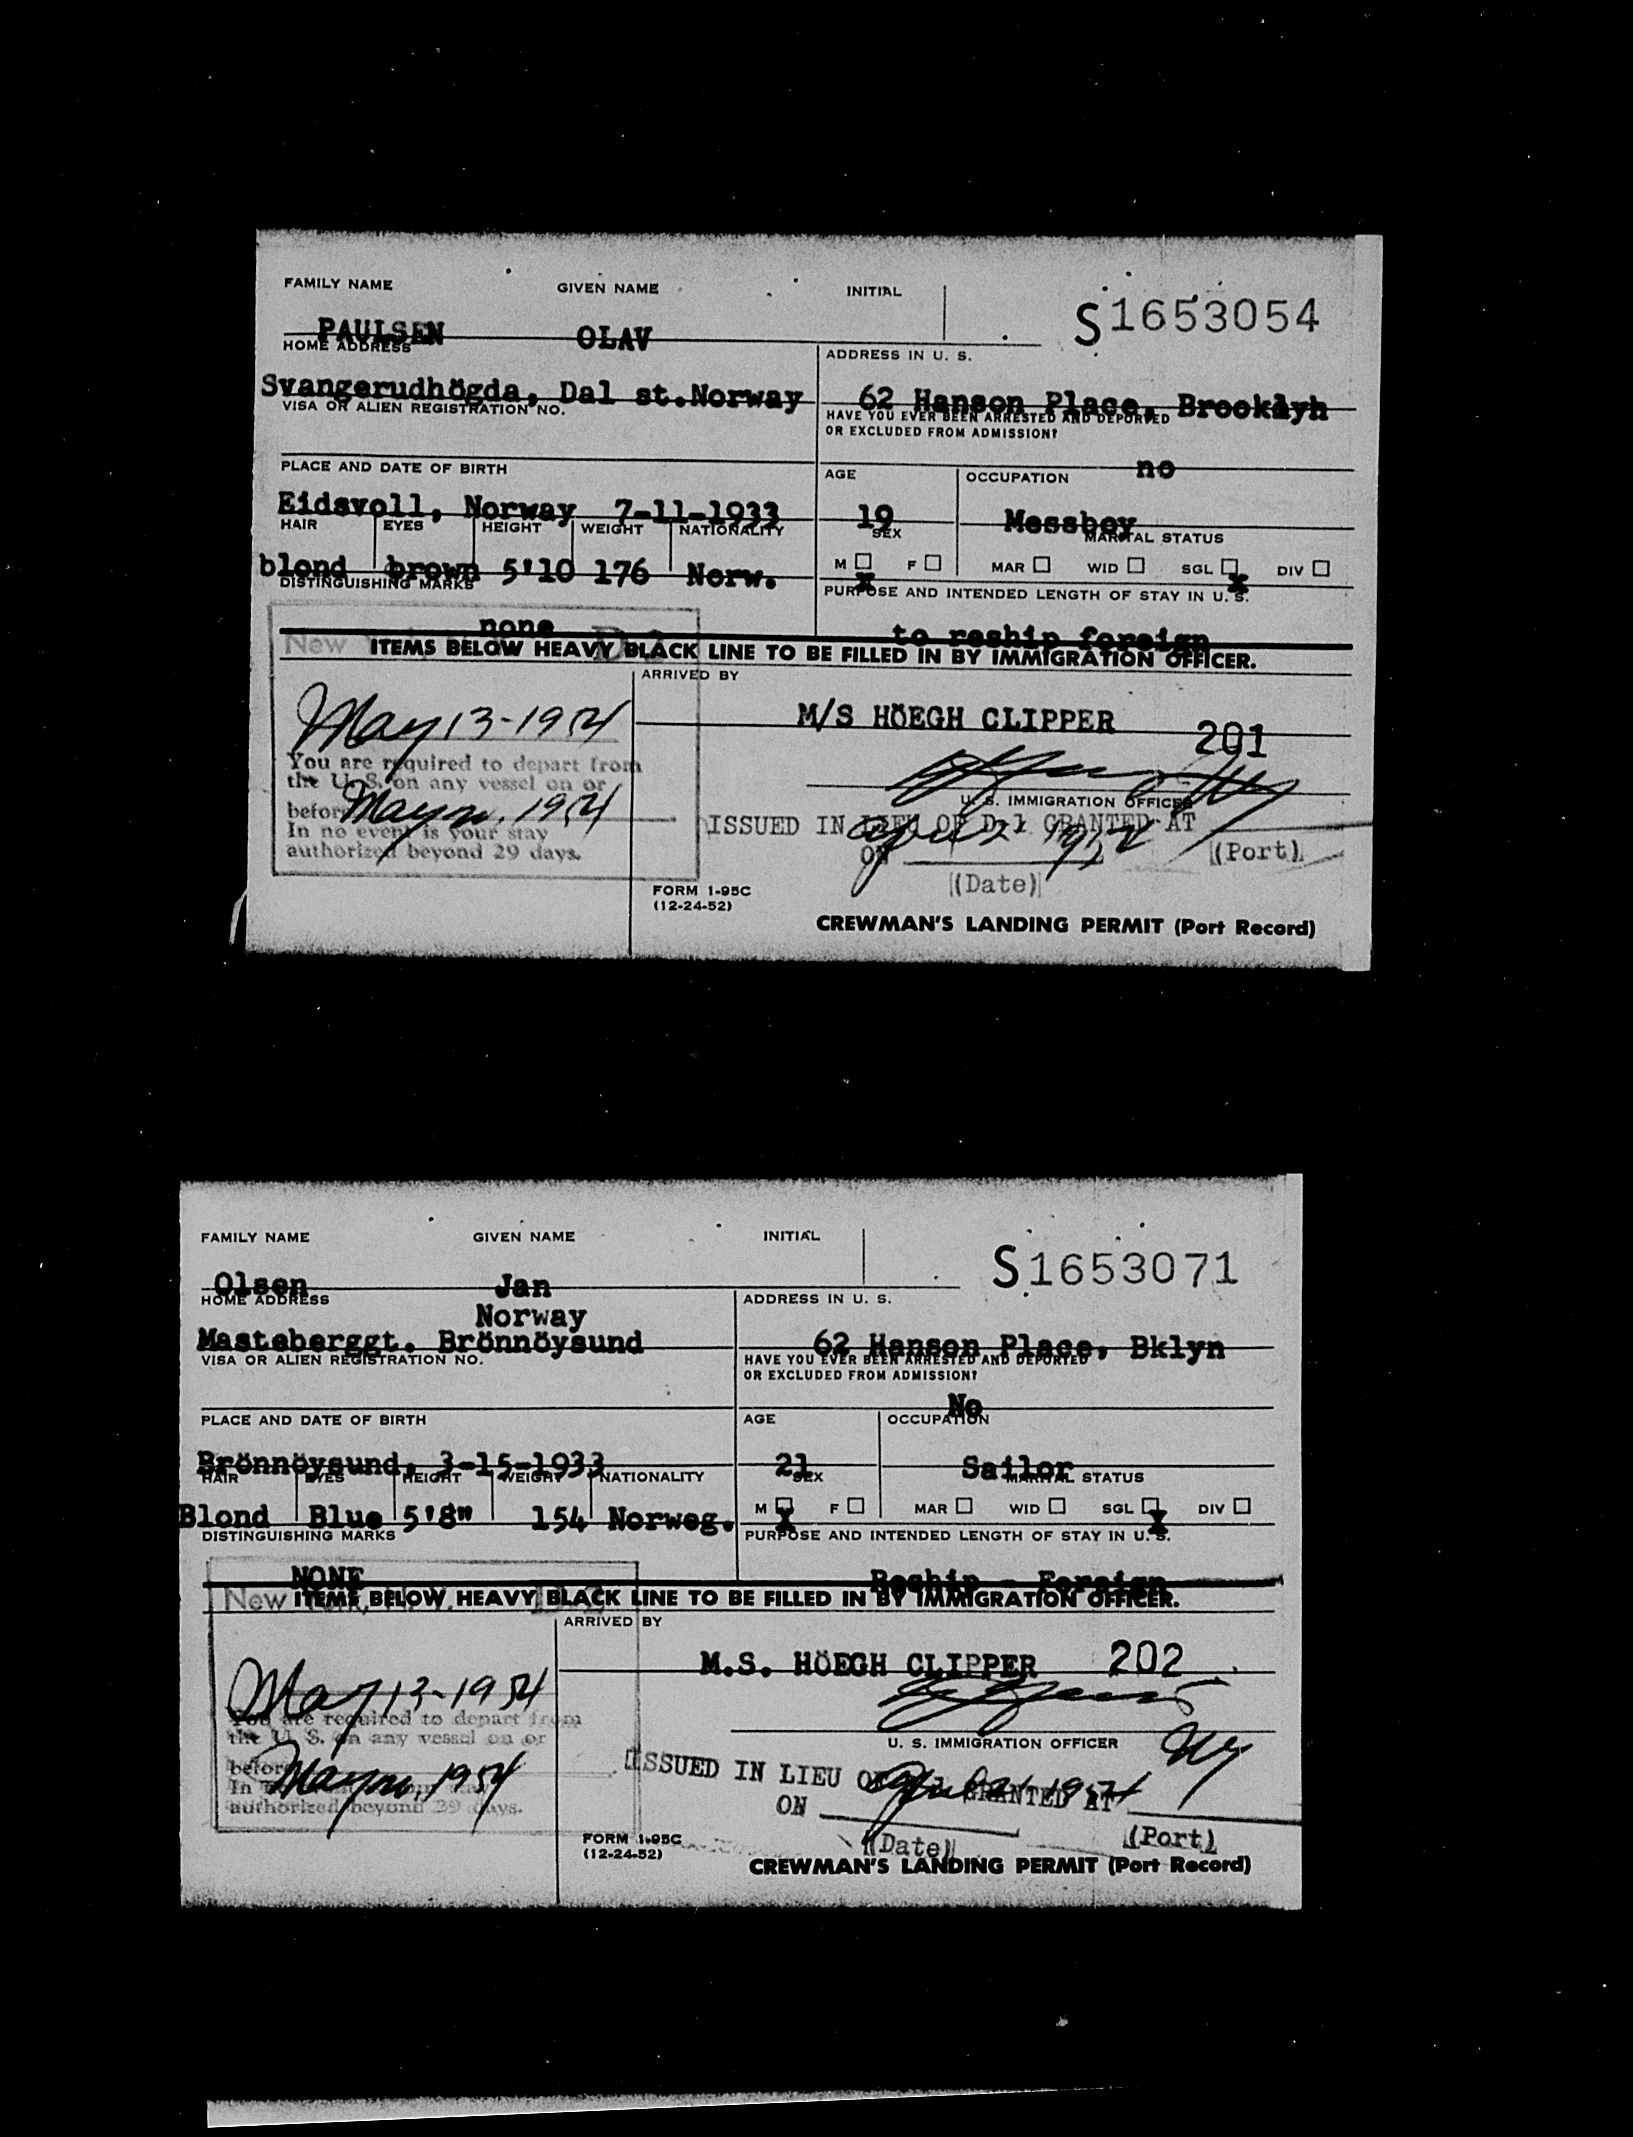 FAMILY NAME GIVEN NAME INITIAL
S1653054
PAULSEN OLAV
HOME ADDRESS ADDRESS IN U. S.
Svangerudhögda, Dal st.Norway 62 Hanson Place, Brooklyh
VISA OR ALIEN REGISTRATION NO. HAVE YOU EVER BEEN ARRESTED AND DEPORTED
OR EXCLUDED FROM ADMISSION?
no
PLACE AND DATE OF BIRTH AGE OCCUPATION
Eidsvoll, Norway 7-11-1933 19 Messboy
HAIR EYES HEIGHT WEIGHT NATIONALITY SEX MARITAL STATUS
blond brown 5'10 176 Norw. M X F MAR WID SGL X DIV
DISTINGUISHING MARKS PURPOSE AND INTENDED LENGTH OF STAY IN U. S.
none to reship foreign
New
ITEMS BELOW HEAVY BLACK LINE TO BE FILLED IN BY IMMIGRATION OFFICER.
ARRIVED BY
May 13-1954 M/S HÖEGH CLIPPER 201
You are required to depart from
the U. S. on any vessel on or
before May 20, 1954
In no event is your stay
authorized beyond 29 days.
U. S. IMMIGRATION OFFICER
ISSUED IN LIEU OF D-1 GRANTED AT
ON April 21 1954 (Port)
(Date)
FORM I-95C
(12-24-52)
CREWMAN'S LANDING PERMIT (Port Record)
FAMILY NAME GIVEN NAME INITIAL
S1653071
Olsen Jan
HOME ADDRESS ADDRESS IN U. S.
Norway
Masteberggt. Brönnöysund 62 Hanson Place, Bklyn
VISA OR ALIEN REGISTRATION NO. HAVE YOU EVER BEEN ARRESTED AND DEPORTED
OR EXCLUDED FROM ADMISSION?
No
PLACE AND DATE OF BIRTH AGE OCCUPATION
Brönnöysund, 3-15-1933 21 Sailor
HAIR EYES HEIGHT WEIGHT NATIONALITY SEX MARITAL STATUS
Blond Blue 5'8" 154 Norweg. M X F MAR WID SGL X DIV
DISTINGUISHING MARKS PURPOSE AND INTENDED LENGTH OF STAY IN U. S.
NONE Reship - Foreign
New
ITEMS BELOW HEAVY BLACK LINE TO BE FILLED IN BY IMMIGRATION OFFICER.
ARRIVED BY
May 13-1954 M.S. HÖEGH CLIPPER 202
You are required to depart from
the U. S. on any vessel on or
before May 20, 1954
In
authorized beyond 29 days.
U. S. IMMIGRATION OFFICER NY
ISSUED IN LIEU OF GRANTED AT
ON April 21 1954 (Port)
(Date)
FORM I-95C
(12-24-52)
CREWMAN'S LANDING PERMIT (Port Record)